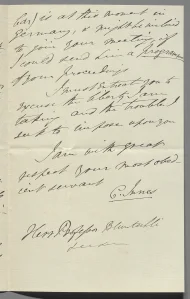 is at this moment in
Germany, & might be inclined
to join your meeting if
I could send him a programme
of your proceedings
I must entreat you to
excuse the liberty I am
taking and the trouble I
seek to impose upon you
I am with great
respect your most obed
ient servant
C. Innes
Herr Professor Bluntschli